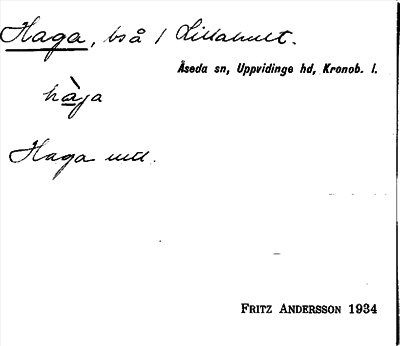 Haga, bs å 1 Lillahult.
Åseda sn, Uppvidinge hd, Kronob. l.
hàga
Haga
FRITZ ANDERSSON 1934